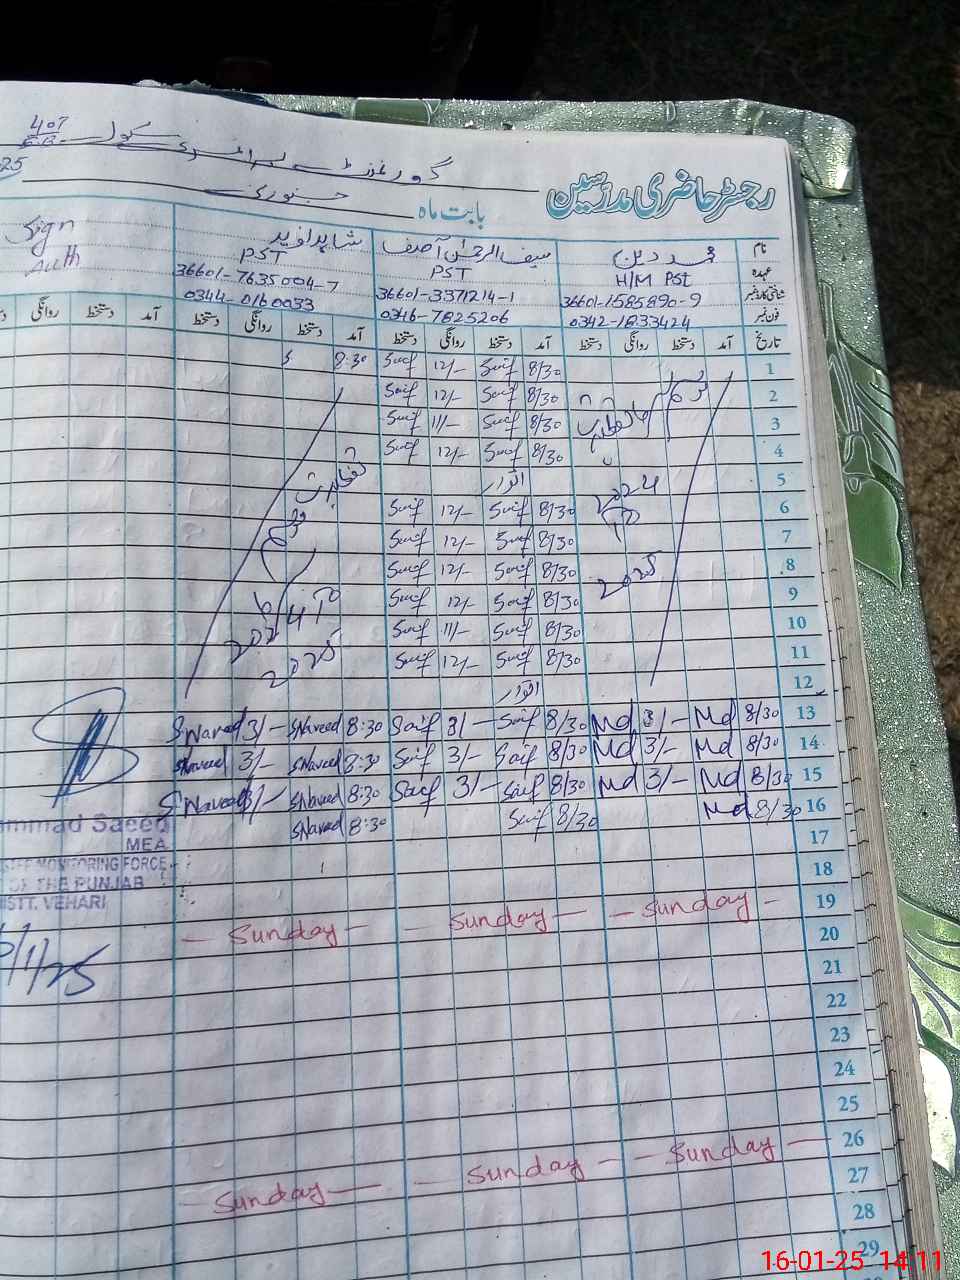 گورنمنٹ پرائمری سکول 407 E.B
رجسٹر حاضری مدرسین
بابت ماہ جنوری 25
نام محمد دین سیف الرحمٰن آصف شاہد نوید Sign
عہدہ H/M PST PST PST Auth
شناختی کارڈ نمبر 36601-1585890-9 36601-3371214-1 36601-7635004-7
فون نمبر 0342-1833424 0346-7825206 0344-0160033
تاریخ آمد دستخط روانگی دستخط آمد دستخط روانگی دستخط آمد دستخط روانگی دستخط آمد دستخط روانگی
1 8/30 Saif 12/- Saif 8:30 S
2 8/30 Saif 12/- Saif
3 8/30 Saif 11/- Saif
4 8/30 Saif 12/- Saif
5 اتوار
6 8/30 Saif 12/- Saif
7 8/30 Saif 12/- Saif
8 8/30 Saif 12/- Saif
9 8/30 Saif 12/- Saif
10 8/30 Saif 11/- Saif
11 8/30 Saif 12/- Saif
12 اتوار
موسم
تعطیلات
2024
تا
2025
تعطیلات
موسم
2024 تا
2025
13 8/30 Md 3/- Md 8/30 Saif 3/- Saif 8:30 SNaveed 3/- SNaveed
14 8/30 Md 3/- Md 8/30 Saif 3/- Saif 8:30 SNaveed 3/- SNaveed
15 8/30 Md 3/- Md 8/30 Saif 3/- Saif 8:30 SNaveed 3/- SNaveed
16 8/30 Md 8/30 Saif 8:30 SNaveed
17
18
19 - Sunday - - Sunday - - Sunday -
20
21
22
23
24
25
26 - Sunday - - Sunday - - Sunday -
27
28
29
ammad Saeed
MEA
MONITORING FORCE
OF THE PUNJAB
DISTT. VEHARI
/1/25
16-01-25 14:11